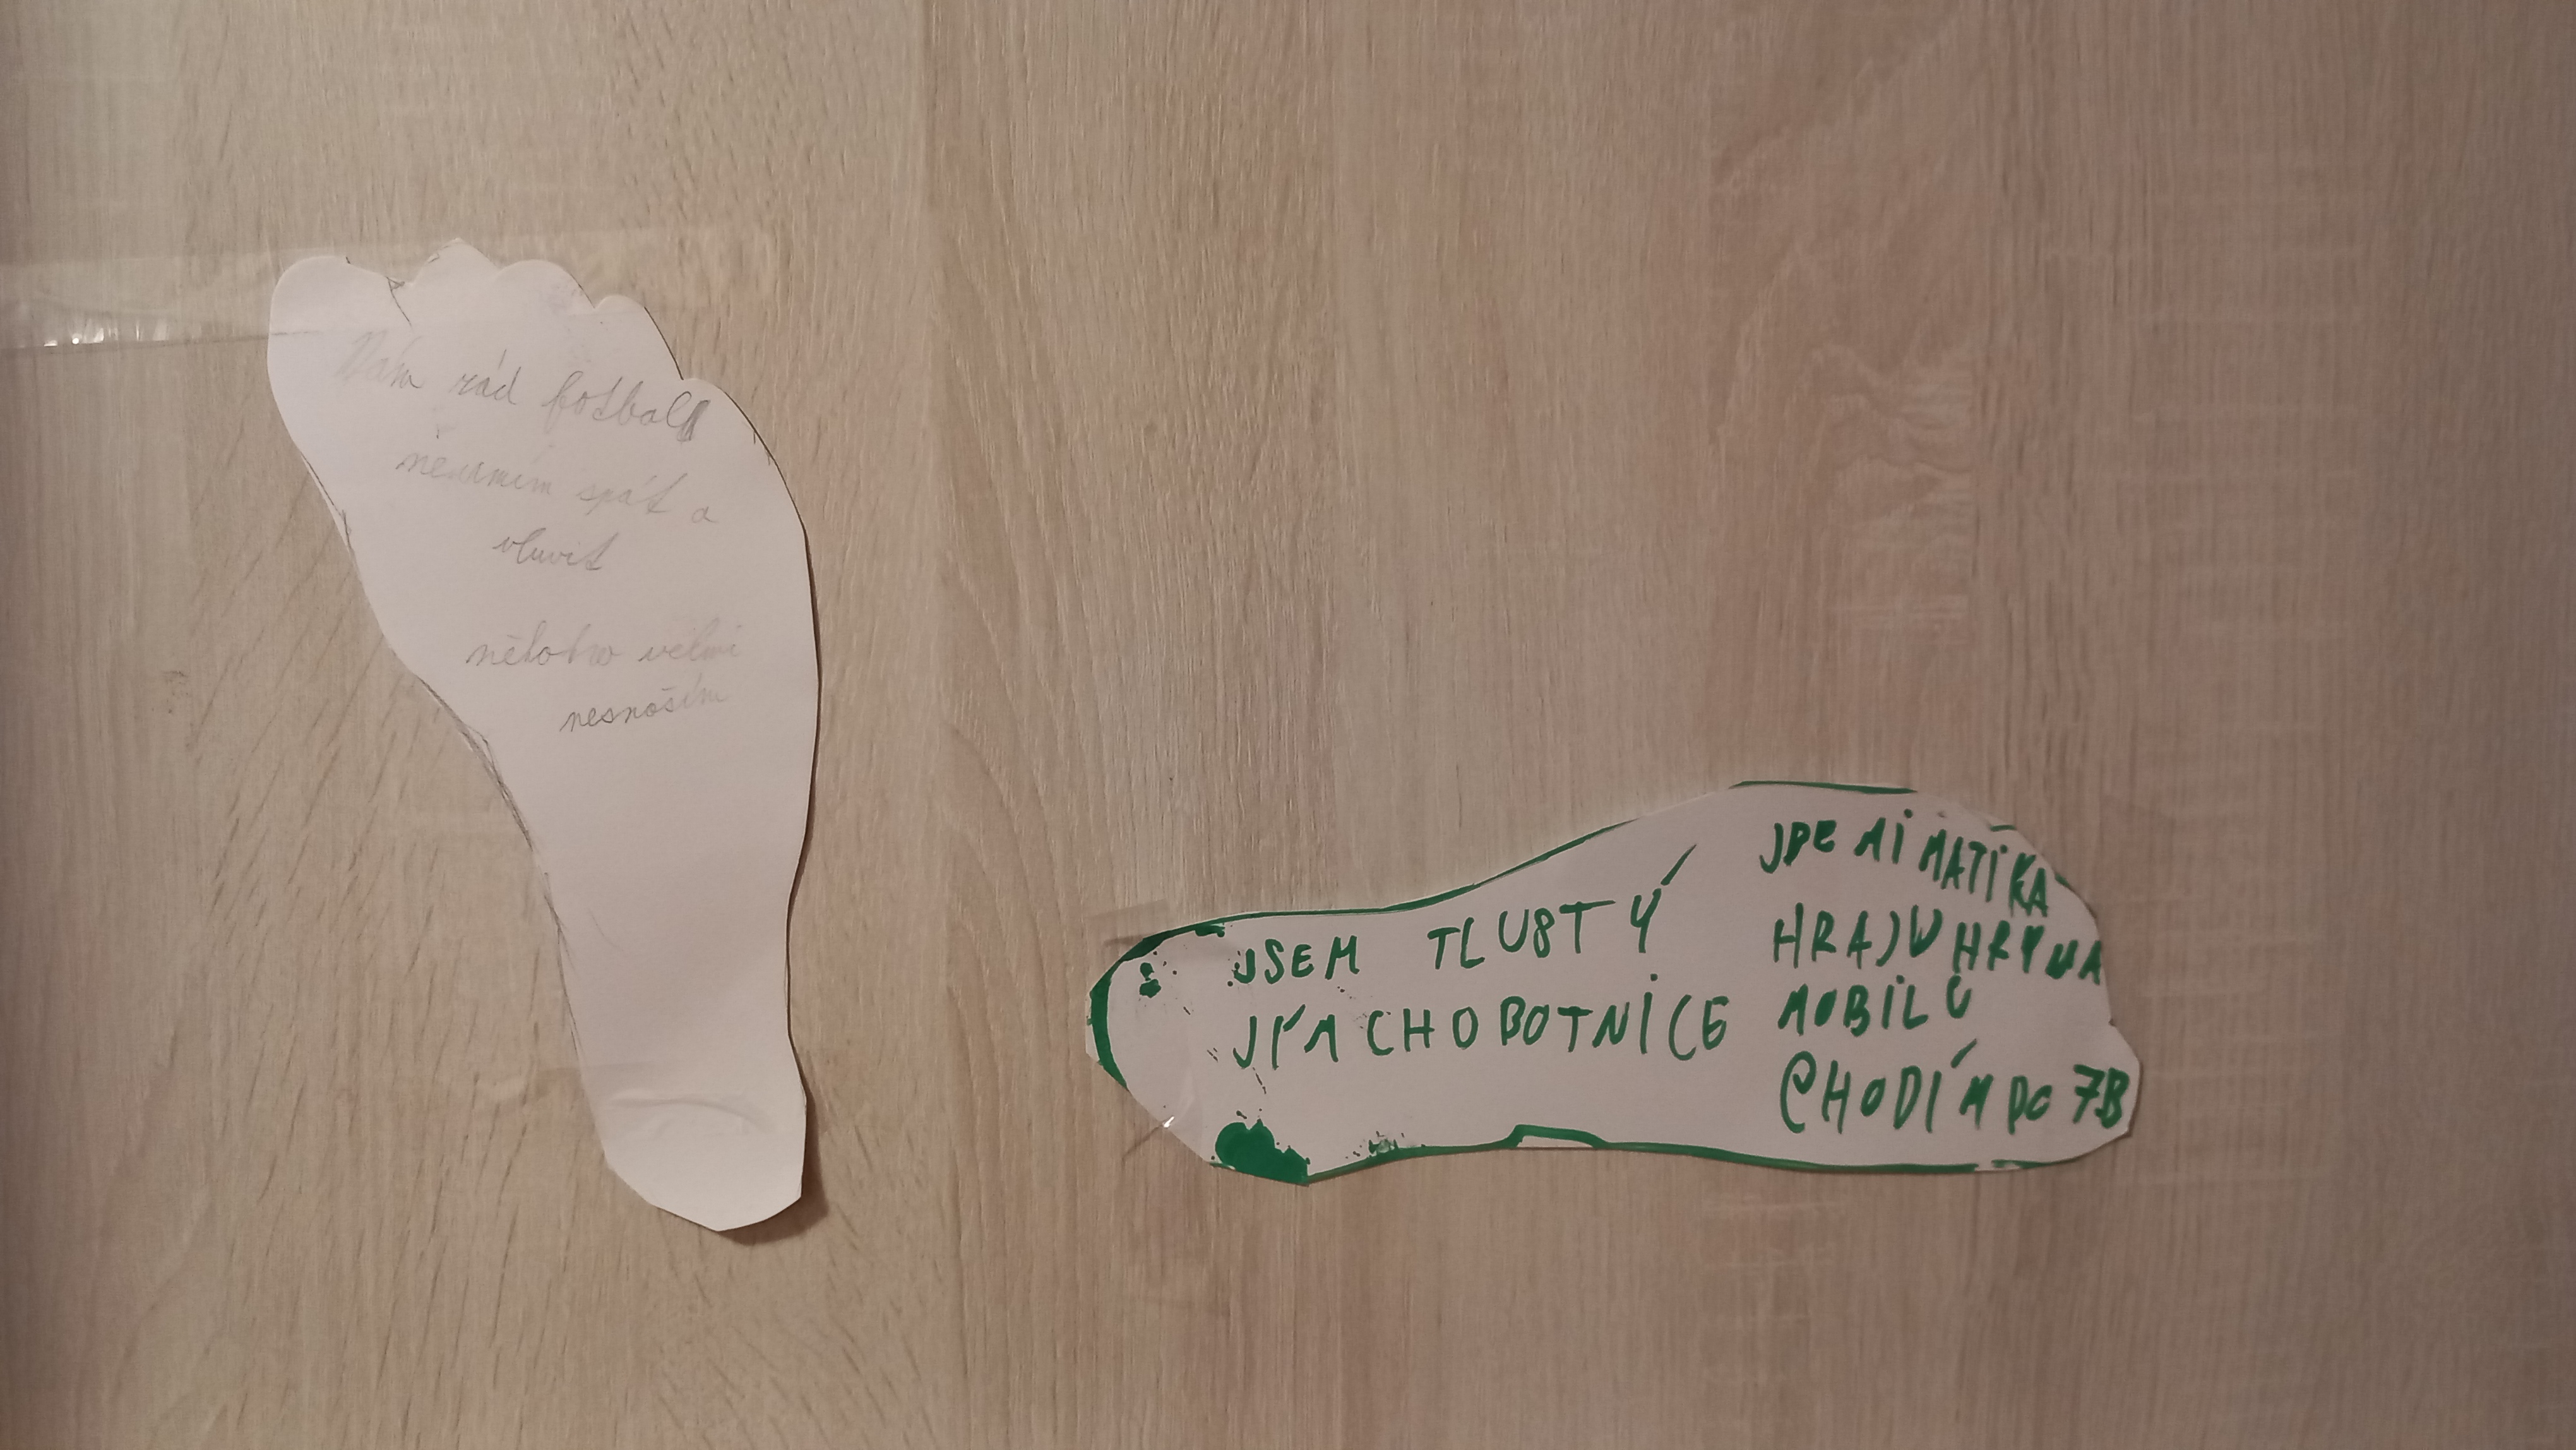 Mám rád fotbal
neumím spát a
vluvit
někoho velmi
nesnoším
JSEM TLUSTÝ
JÍM CHOBOTNICE
JDE MI MATIKA
HRAJU HRY NA
MOBILU
CHODÍM DO 7B